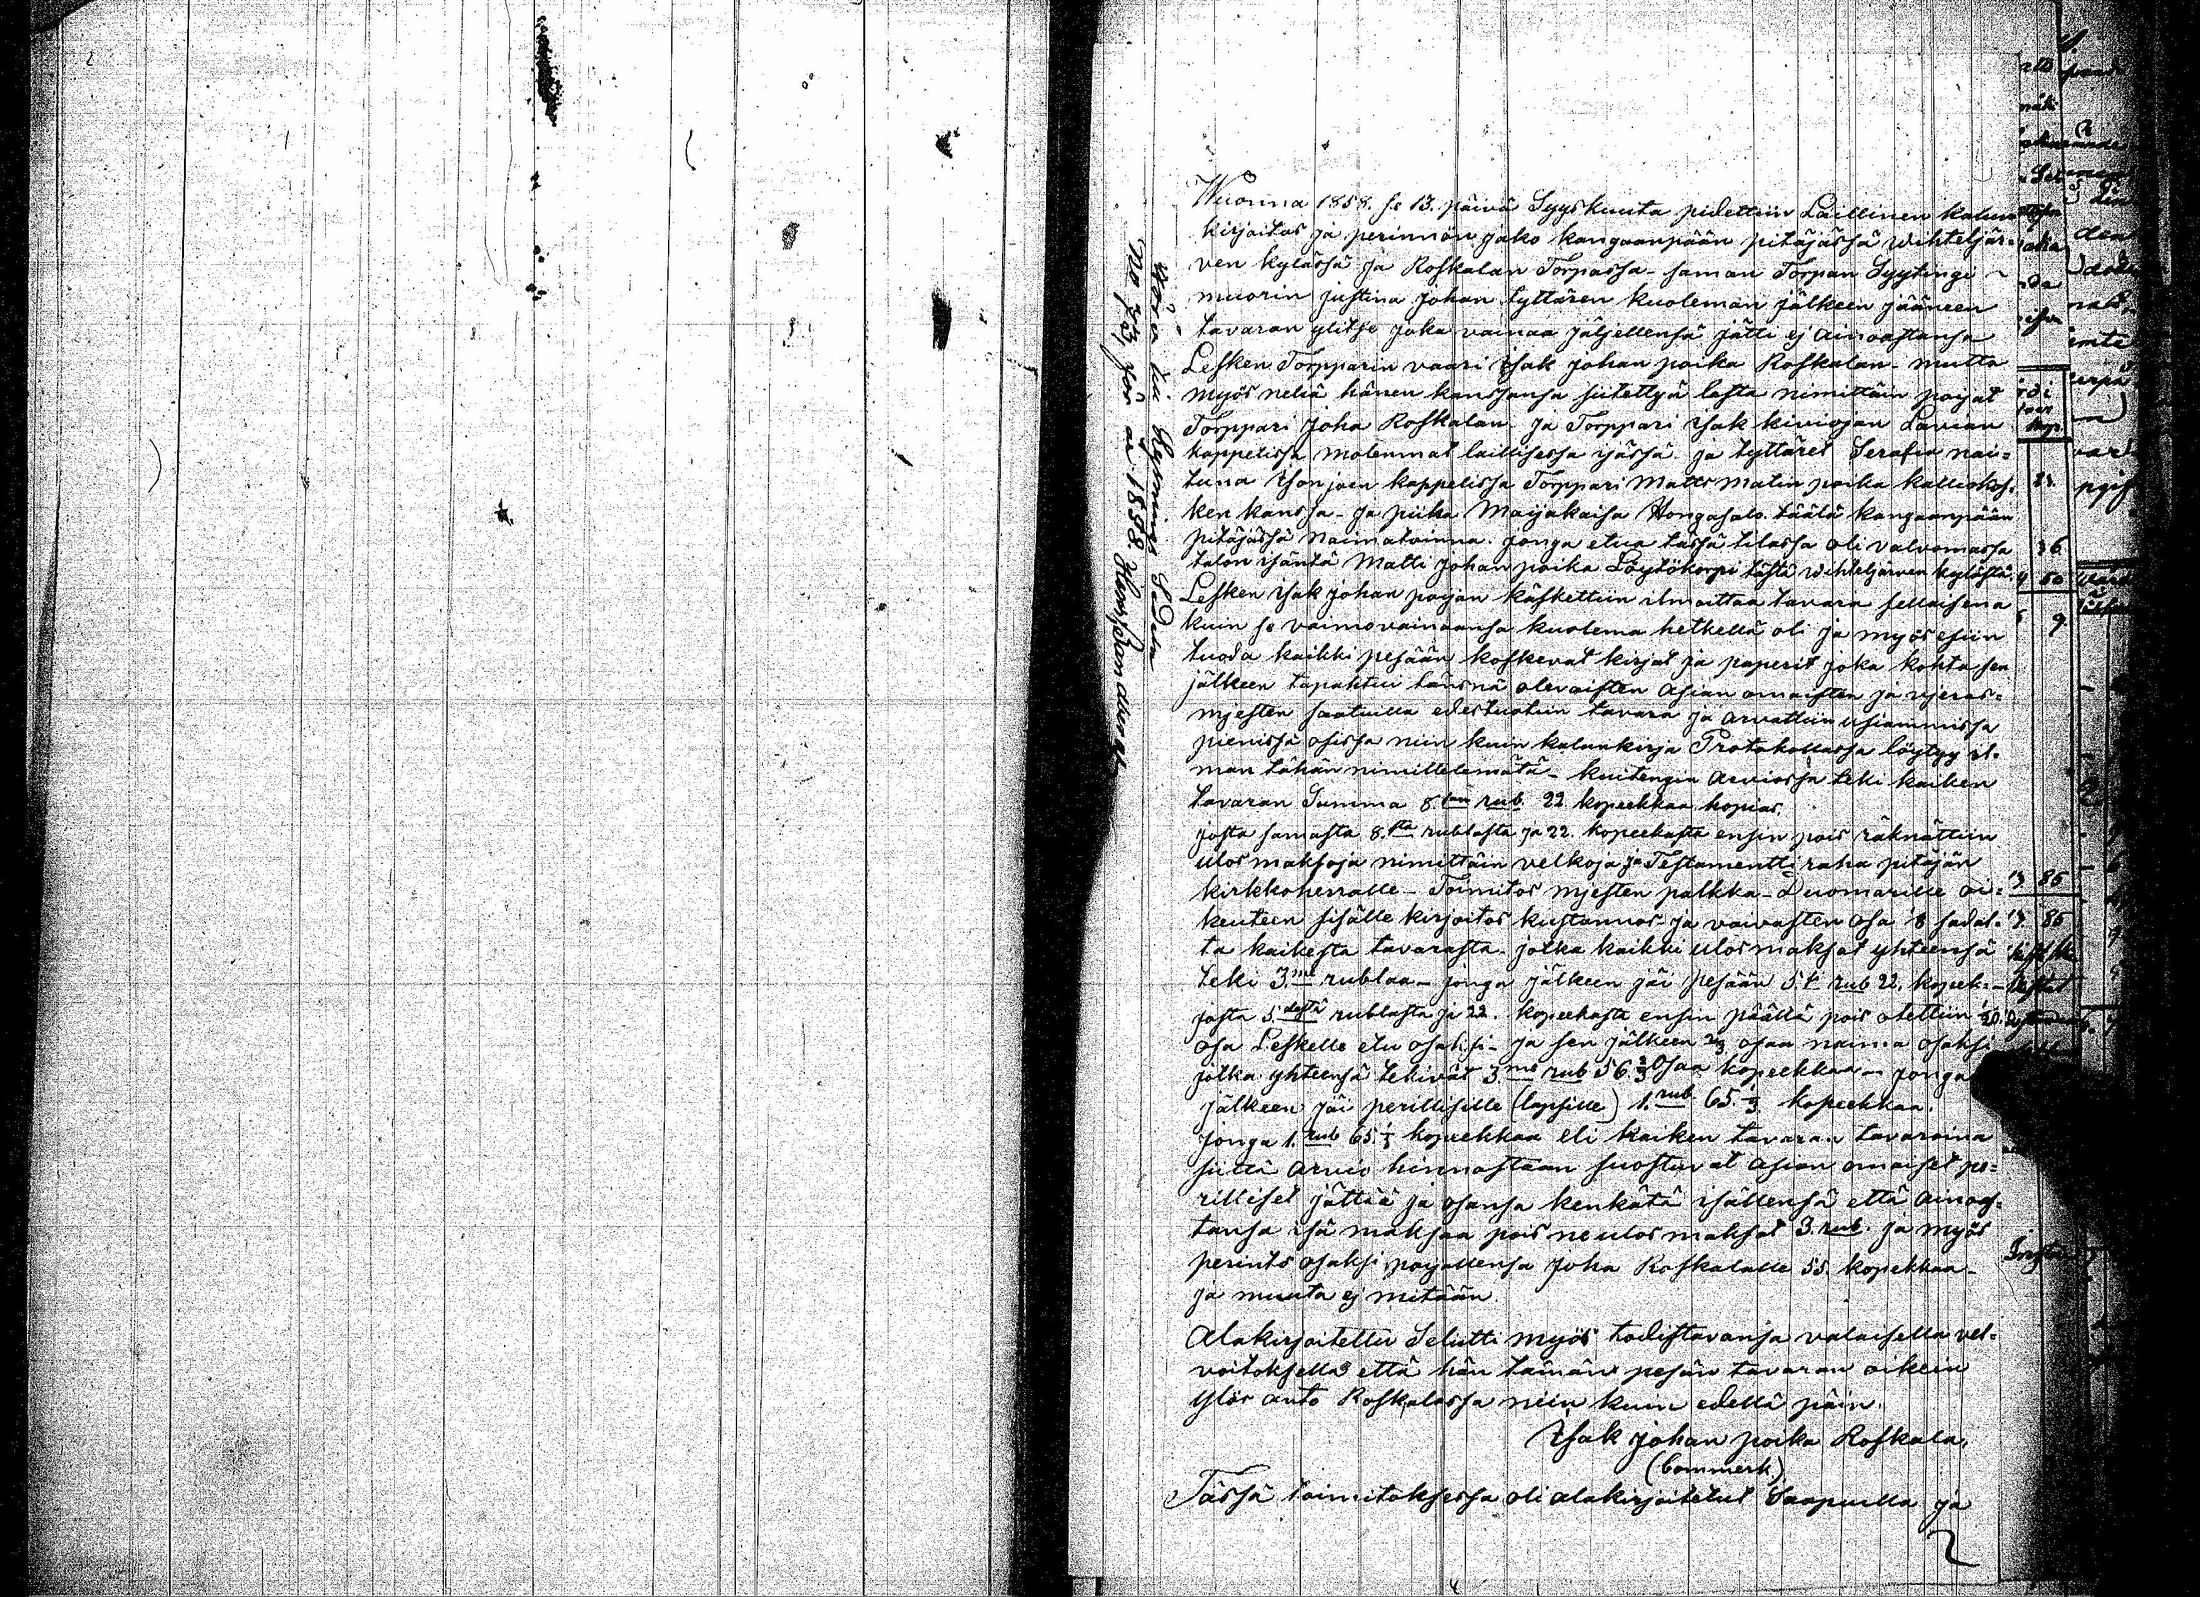 Wuonna 1858. se 13. päivä Syyskuuta pidettiin Laillinen kalun
kirjoitus ja perinnön jako kangaanpään pitäjässä Wihteljär-
ven kylässä ja Roskalan Torpassa - saman Torpan Syytingi
muorin justina johan tyttären kuoleman jälkeen jääneen
tavaran ylitse joka vainaa jäljellensä jätti ej ainoastansa
Lesken Torpparin vaari isak johan poika Roskalan - mutta
myös neliä hänen kanssansa siitettyä lasta nimittäin pojat
Torppari Joha Roskalan - ja Torppari isak kiviojan Lavian
kappelissa molemmat laillisessa ijässä. ja tyttäret Serafia nai=
tuna ison joen kappelissa Torppari Matts Matin poika kalliokos-
ken kanssa - ja piika Maijakaisa Hongasalo täälä kangaanpään
pitäjässä naimatoinna. jonga etua tässä tilassa oli valvomassa
talon isäntä Matti Johan poika Löytökorpi tästä Wihteljärven kylästä.
Lesken isak johan pojan käskettiin ilmoittaa tavara sellaisena
kuin se vaimovainaansa kuolema hetkellä oli ja myös esiin
tuoda kaikki pesään koskevat kirjat ja paperit joka kohta sen
jälkeen tapahtui läsnä olevaisten asian omaisten ja vieras=
mjesten saatuilla edestuotiin tavara ja arvattiin usiammissa
pienissä osissa niin kuin kalunkirja Protokollassa löytyy il-
man tähän nimittelemätä - kuitengin arviossa teki kaiken
tavaran Summa 8. rub. 22 kopeekkaa hopias.
josta samasta 8.sta rublasta ja 22. kopeekasta ensin pois räknättiin
ulosmaksoja nimittäin velkoja ja Testamentti raha pitäjän
kirkkoherralle - Toimitos mjesten palkka - Duomarille oi=
keuteen sisälle kirjoitos kustannos - ja vaivasten osa 8 sadas-
ta kaikesta tavarasta - jotka kaikki ulosmaksat yhteensä
teki 3.me rublaa - jonga jälkeen jäi pesään 5.si rub 22. kopek. -
josta 5.destä rublasta ja 22. kopeekasta ensin päältä pois otettiin 1/20.
osa Leskelle etu osaksi - ja sen jälkeen 2/3 osaa naima osaksi
jotka yhteensä tekivät 3.me rub 56. 2/3 osaa kopeekkaa - jonga
jälkeen jäi perillisille (lapsille) 1. rub. 65. 1/3 kopeekkaa.
jonga 1. rub 65. 1/3 kopeekkaa eli kaiken tavaran tavaroina
siitä arvio hinnastaan suostuvat asian omaiset pe=
rilliset jättää ja osansa kenkätä isällensä että ainoas-
tansa isä maksaa pois ne ulosmaksat 3. rub. ja myös
perintö osaksi pojallensa Joha Roskalalle 55. kopekkaa -
ja muuta ej mitään.
Alakirjoitettu Selitti myös todistavansa valaisella vel=
voitoksella että hän tämän pesän tavaran oikein
ylös anto Roskalassa niin kuin edellä päin.
Isak johan poika Roskala.
(bommerk)
Tässä toimitoksessa oli alakirjoitetut Saapuilla ja
No 73, för år 1858.